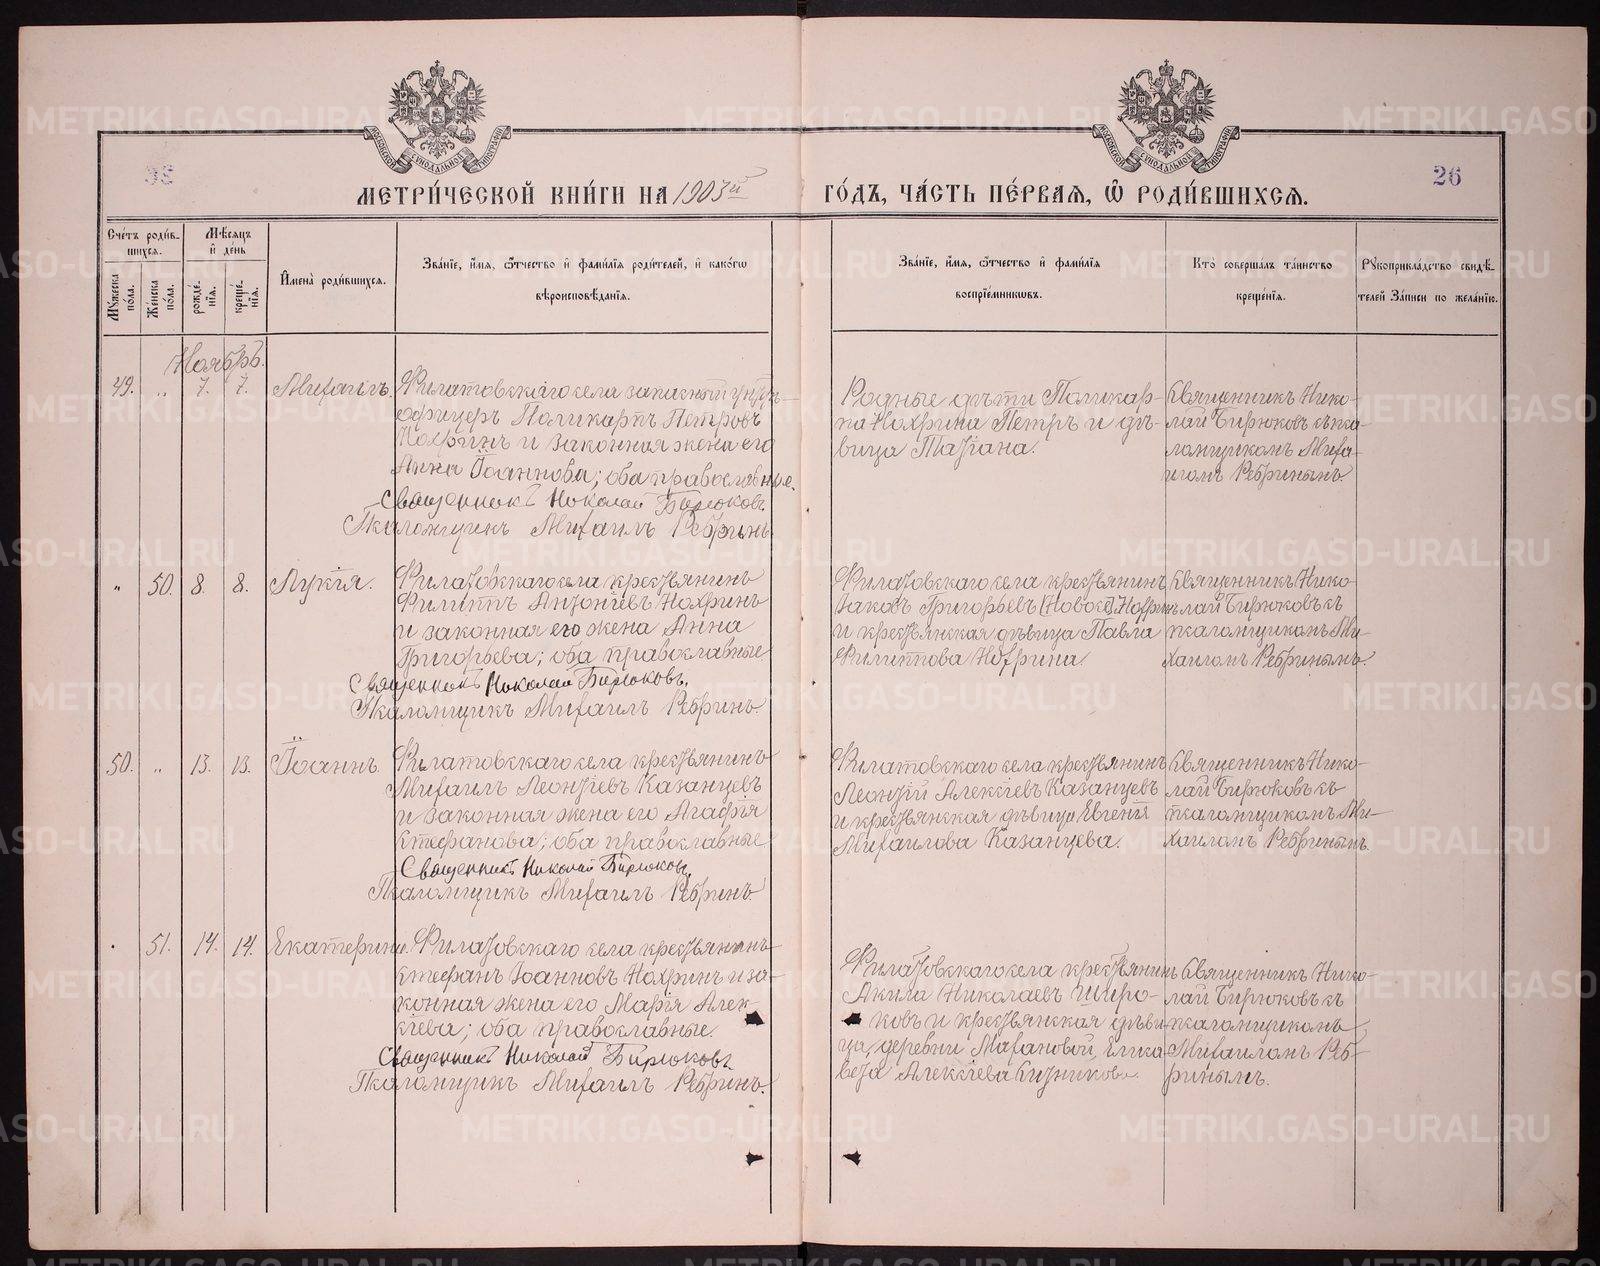 МЕТРИ́ЧЕСКОЙ КНИ́ГИ НА 1903й ГО́ДЪ, ЧА́СТЬ ПЕ́РВАЯ, Ѡ҆ РОДИ́ВШИХСЯ.
26
МОСКОВСКОЙ СѴНОДАЛЬНОЙ ТИПОГРАФІИ
МОСКОВСКОЙ СѴНОДАЛЬНОЙ ТИПОГРАФІИ
Сче́тъ роди́в-
шихся.
Му́жеска по́ла.
Же́нска по́ла.
Мѣ́сяцъ
и҆ де́нь
рожде́-
нїя.
креще́-
нїя.
И҆мена̀ роди́вшихся.
Зва́нїе, и҆́мя, ѻ҆́тчество и҆ фами́лїя роди́телей, и҆ како́гѡ
вѣроисповѣ́данїя.
Зва́нїе, и҆́мя, ѻ҆́тчество и҆ фами́лїя
воспрїе́мниковъ.
Кто̀ соверша́лъ та́инство
креще́нїя.
Рꙋкоприкла́дство свидѣ́-
телей за́писи по жела́нїю.
Ноябрь.
49. „ 7. 7. Михаилъ.
Филатовскаго села запасный унтъ-
офицеръ Поликарпъ Петровъ
Нохринъ и законная жена его
Анна Іоаннова; оба православные.
Священникъ Николай Бирюковъ
Псаломщикъ Михаилъ Ребринъ
Родные дѣти Поликар-
па Нохрина Петръ и дѣ-
вица Татіана.
Священникъ Нико-
лай Бирюковъ съ пса-
ломщикомъ Миха-
иломъ Ребринымъ
„ 50. 8. 8. Лукія.
Филатовскаго села крестьянинъ
Филиппъ Антоніевъ Нохринъ
и законная его жена Анна
Григорьева; оба православные
Священникъ Николай Бирюковъ.
Псаломщикъ Михаилъ Ребринъ.
Филатовскаго села крестьянинъ
Іаковъ Григорьевъ Нохринъ
и крестьянская дѣвица Павла
Филиппова Нохрина.
Священникъ Нико-
лай Бирюковъ съ
псаломщикомъ Ми-
хаиломъ Ребринымъ.
50. „ 13. 13. Іоаннъ.
Филатовскаго села крестьянинъ
Михаилъ Леонтіевъ Казанцевъ
и законная жена его Агафія
Стефанова; оба православные
Священникъ Николай Бирюковъ,
Псаломщикъ Михаилъ Ребринъ
Филатовскаго села крестьянинъ
Леонтій Алексіевъ Казанцевъ
и крестьянская дѣвица Евгенія
Михаилова Казанцева.
Священникъ Нико-
лай Бирюковъ съ
псаломщикомъ Ми-
хаиломъ Ребринымъ
. 51. 14. 14. Екатерина.
Филатовскаго села крестьянинъ
Стефанъ Іоанновъ Нохринъ и за-
конная жена его Марія Алек-
сіева; оба православные.
Священникъ Николай Бирюковъ.
Псаломщикъ Михаилъ Ребринъ.
Филатовскаго села крестьянинъ
Акила Николаевъ Широ-
ковъ и крестьянская дѣви-
ца, деревни Махановой, Елиса-
вета Алексіева
Священникъ Нико-
лай Бирюковъ съ
псаломщикомъ
Михаиломъ Реб-
ринымъ.
METRIKI.GASO-URAL.RU